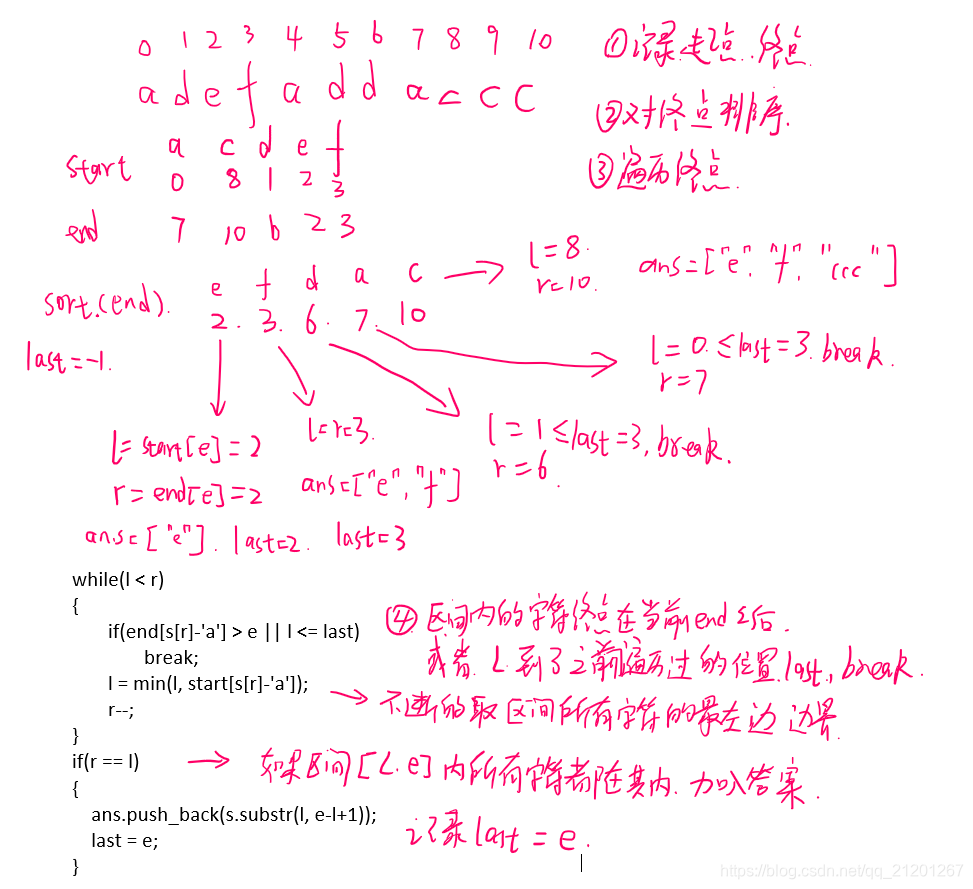 0 1 2 3 4 5 6 7 8 9 10
a d e f a d d a c c c
①记录起点、终点
②对终点排序.
③遍历终点.
a c d e f
start 0 8 1 2 3
end 7 10 6 2 3
e f d a c
sort.(end). 2. 3. 6. 7. 10
l=8.
r=10.
ans=["e", "f", "ccc"]
last=-1.
l=0.≤last=3. break.
r=7
l=1≤last=3, break.
r=6
l=r=3.
ans=["e","f"]
last=3
l=start[e]=2
r=end[e]=2
ans=["e"]. last=2.
while(l < r)
{
if(end[s[r]-'a'] > e || l <= last)
break;
l = min(l, start[s[r]-'a']);
r--;
}
④区间内的字符终点在当前end之后.
或者. L到了之前遍历过的位置last, break.
不断的取区间所有字符的最左边边界.
if(r == l)
如果区间[L.e]内所有字符都在其内. 加入答案.
{
ans.push_back(s.substr(l, e-l+1));
last = e;
记录last = e.
}
https://blog.csdn.net/qq_21201267